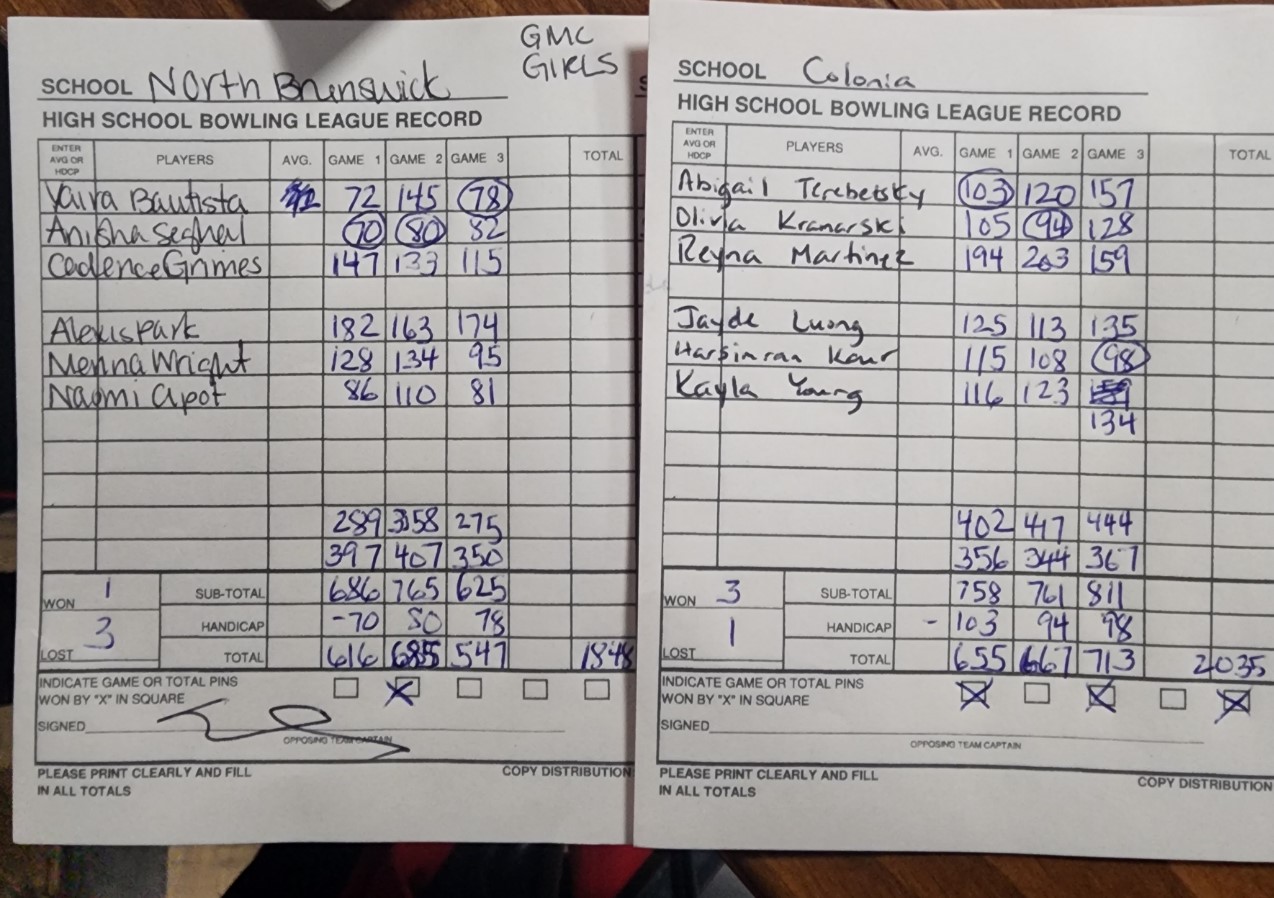 GMC
GIRLS
SCHOOL North Brunswick
HIGH SCHOOL BOWLING LEAGUE RECORD
ENTER AVG OR HDCP PLAYERS AVG. GAME 1 GAME 2 GAME 3 TOTAL
Yaira Bautista 72 145 78
Anisha Seghal 70 80 82
Cadence Grimes 147 133 115
Alexis Park 182 163 174
Menna Wright 128 134 95
Naomi Apot 86 110 81
289 358 275
397 407 350
WON 1 SUB-TOTAL 686 765 625
3 HANDICAP -70 80 78
LOST TOTAL 616 685 547 1848
INDICATE GAME OR TOTAL PINS
WON BY "X" IN SQUARE X
SIGNED
OPPOSING TEAM CAPTAIN
PLEASE PRINT CLEARLY AND FILL COPY DISTRIBUTION
IN ALL TOTALS
SCHOOL Colonia
HIGH SCHOOL BOWLING LEAGUE RECORD
ENTER AVG OR HDCP PLAYERS AVG. GAME 1 GAME 2 GAME 3 TOTAL
Abigail Terebetsky 103 120 157
Olivia Kranarski 105 94 128
Reyna Martinez 194 203 159
Jayde Luong 125 113 135
Harsimran Kaur 115 108 98
Kayla Young 116 123
134
402 417 444
356 344 367
WON 3 SUB-TOTAL 758 761 811
1 HANDICAP - 103 94 98
LOST TOTAL 655 667 713 2035
INDICATE GAME OR TOTAL PINS
WON BY "X" IN SQUARE X X X
SIGNED
OPPOSING TEAM CAPTAIN
PLEASE PRINT CLEARLY AND FILL COPY DISTRIBUTION
IN ALL TOTALS